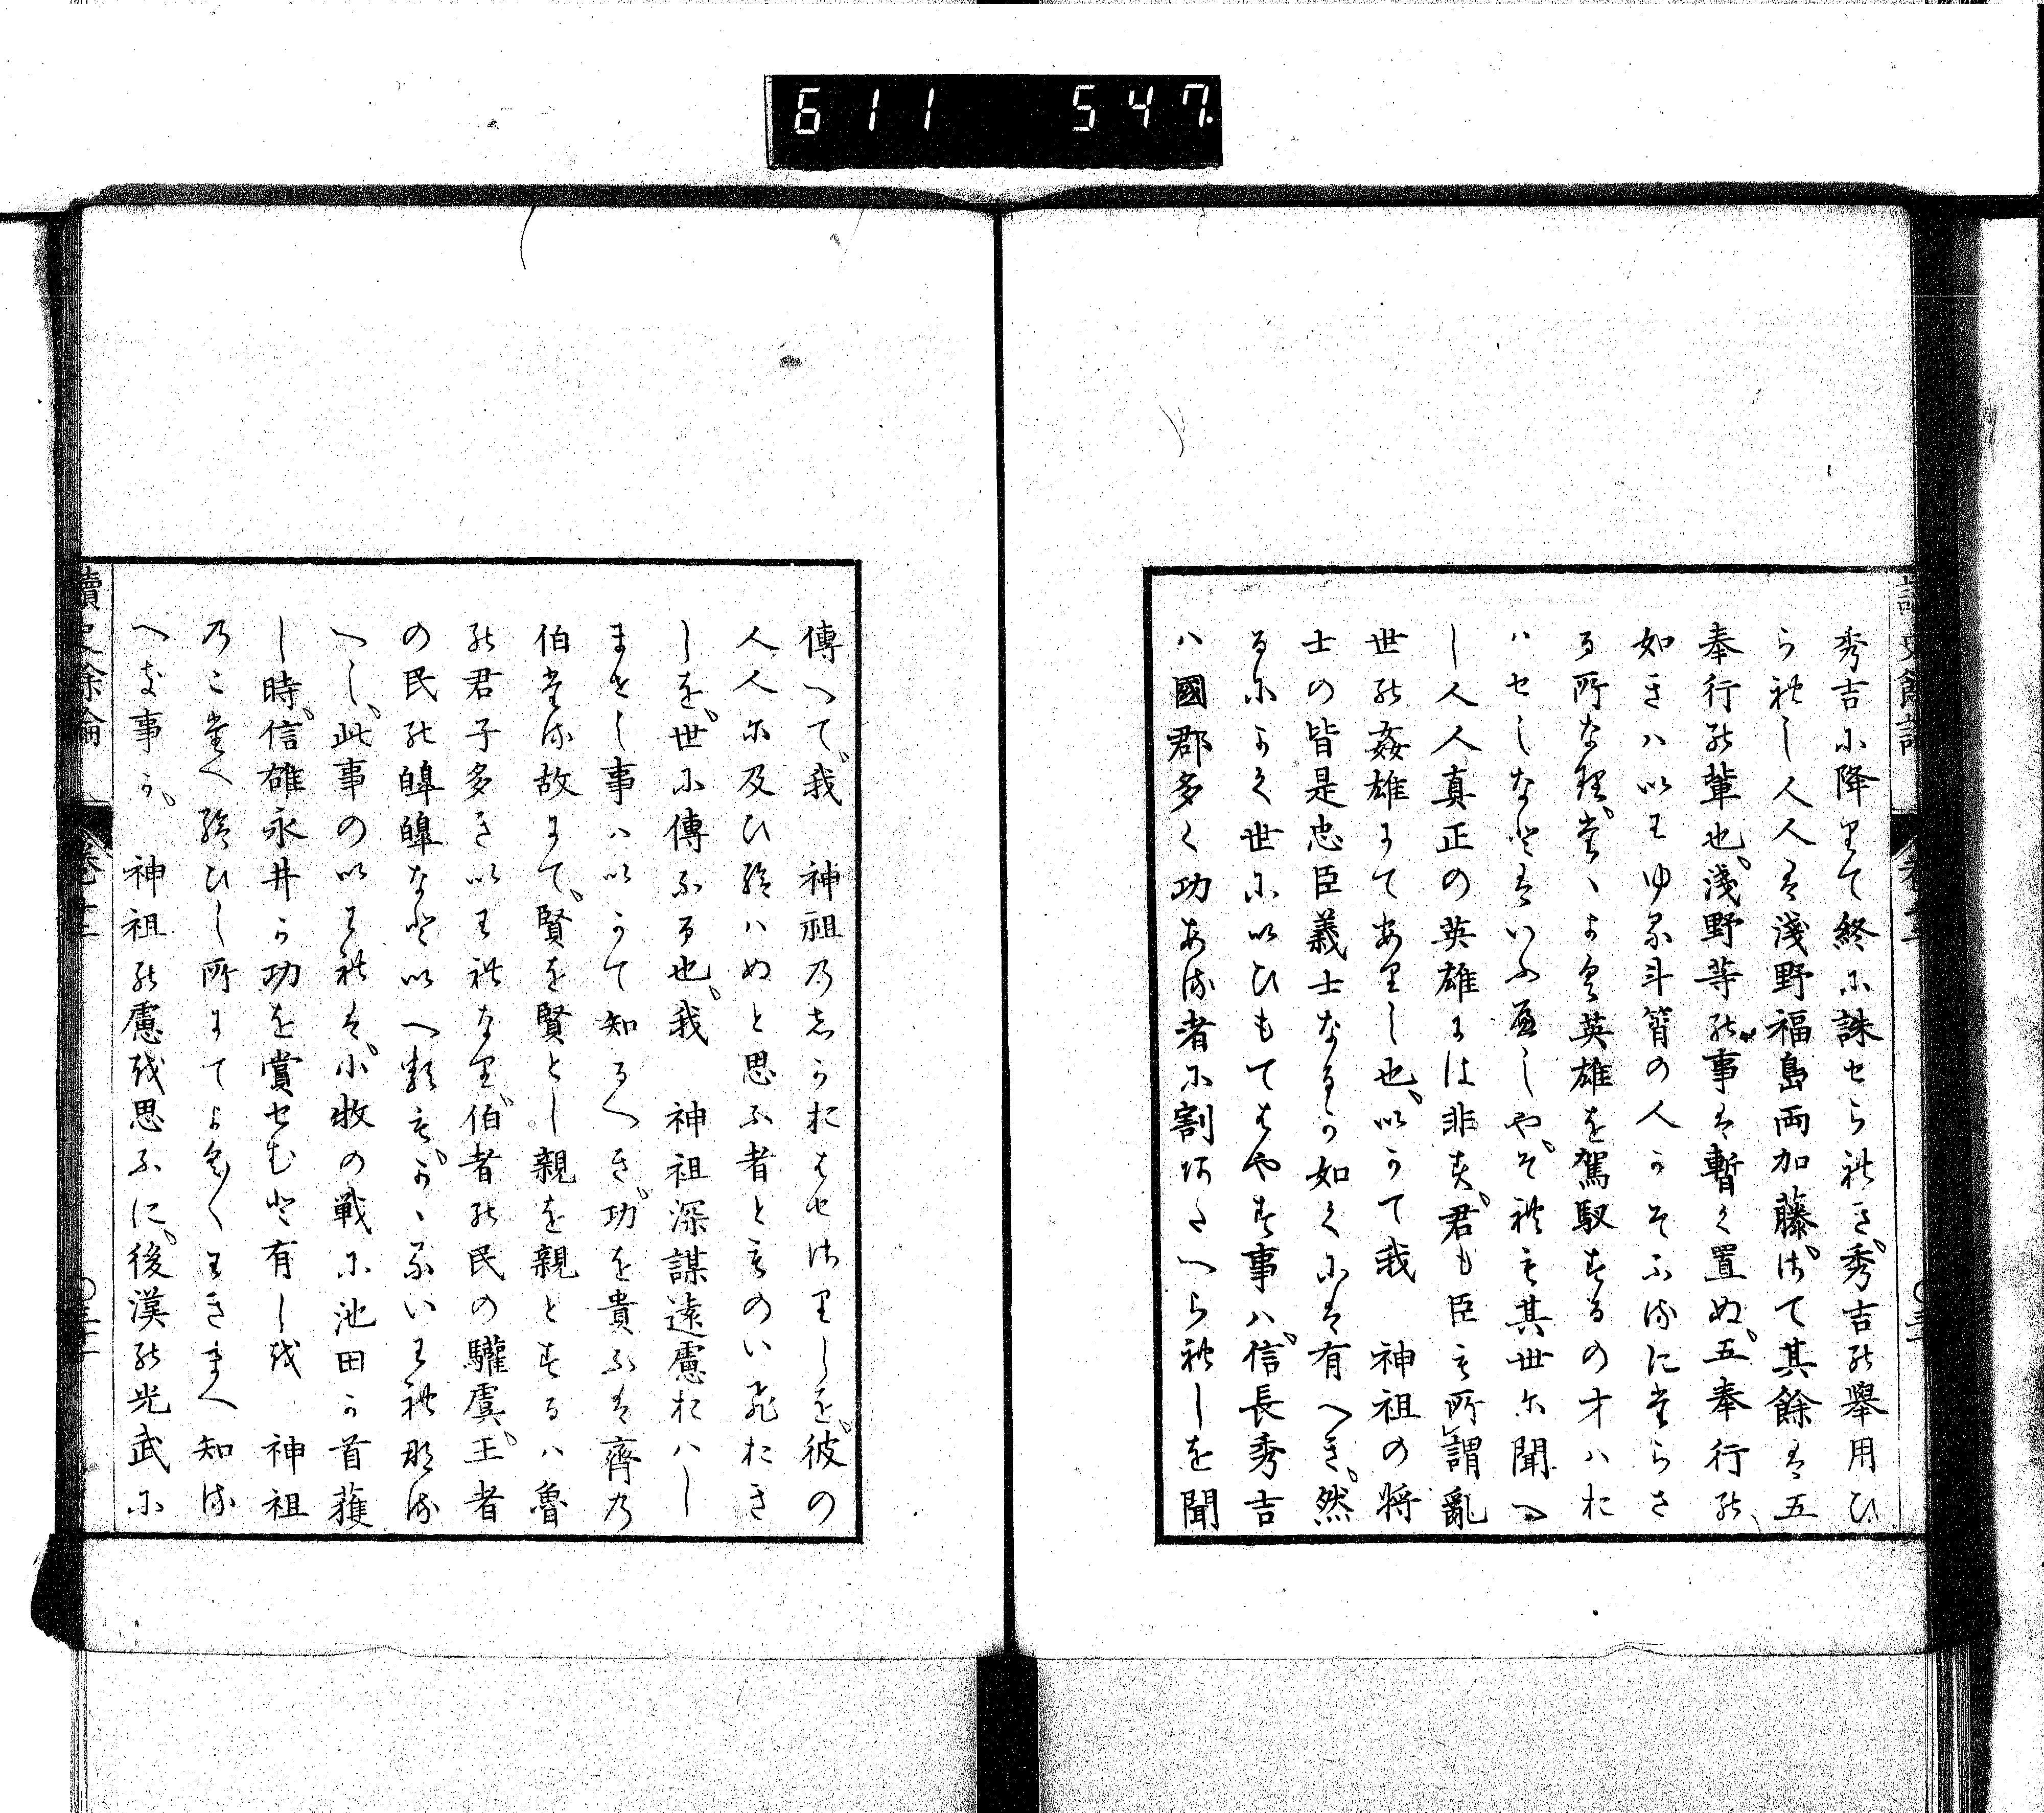 611 547
秀吉に降りて終に誅せられき、秀吉の擧用ひ
られし人人は淺野福島両加藤、さて其餘は五
奉行の輩也、淺野等の事は暫く置ぬ、五奉行の
如きハいわゆる斗筲の人かそふるにたらさ
る所なり、たゝよく英雄を駕馭するの才ハお
ハせしなとはいふへしや、それも其世に聞へ
し人人真正の英雄には非す、君も臣も所謂亂
世の姦雄にてありし也、いかて我　神祖の将
士の皆是忠臣義士なるか如くには有へき、然
るによく世にいひもてはやす事ハ、信長秀吉
ハ國郡多く功ある者に割あたへられしを聞
傳へて、我　神祖のしかおはせさりしを、彼の
人人に及ひ給ハぬと思ふ者ともの
しを、世に傳ふる也、我　神祖深謀遠慮おハし
ませし事ハいかて知るへき、功を貴ふは齊の
伯たる故にて、賢を賢とし親を親とするハ魯
の君子多きいわれなり、伯者の民の驩虞、王者
の民の皥皥なといへるも、かゝるいわれなる
へし、此事のいわれは、小牧の戦に池田か首獲
し時、信雄永井か功を賞せむと有しを　神祖
のこたへ給ひし所にてよくよくわきまへ知る
へき事か、　神祖の慮を思ふに、後漢の光武に
讀史餘論　卷十二